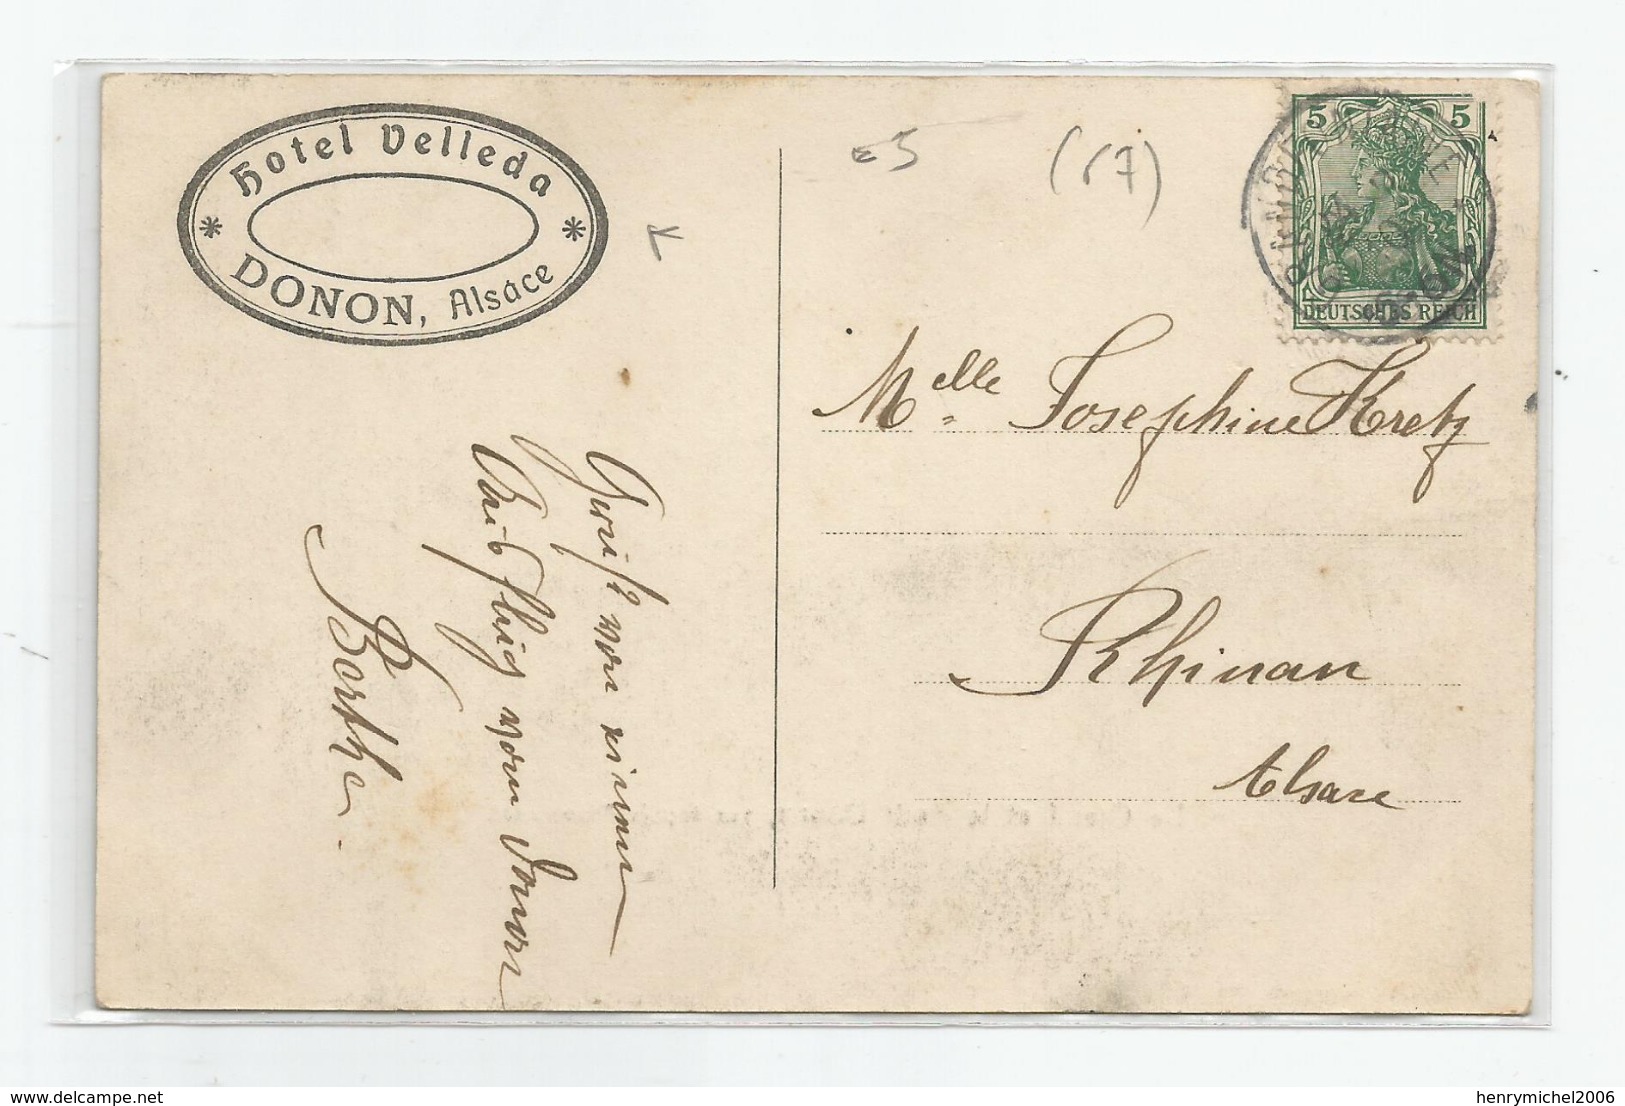 Hotel Velleda
DONON, Alsace
E5
(67)
5 5
DEUTSCHES REICH
Melle Josephine Kretz
Rhinau
Alsace
Gruß von einem
Ausflug vom Donon
Berthe.
www.delcampe.net
henrymichel2006